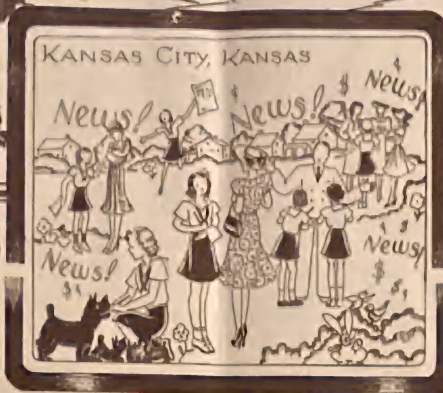 KANSAS CITY, KANSAS
News!
News!
$
$
News!
News!
$
$
News!
$
$